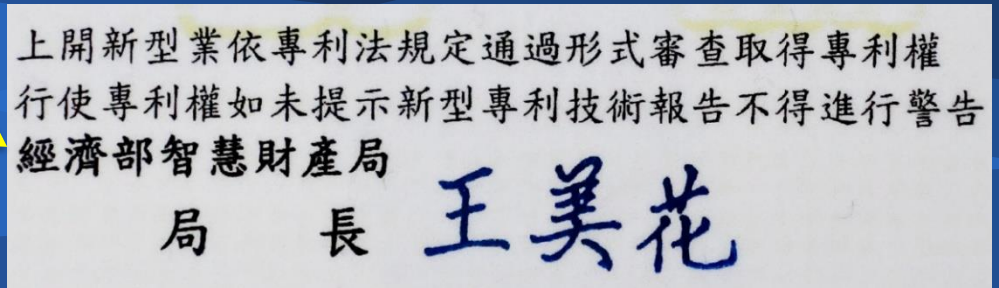 上開新型業依專利法規定通過形式審查取得專利權
行使專利權如未提示新型專利技術報告不得進行警告
經濟部智慧財產局
局長 王美花